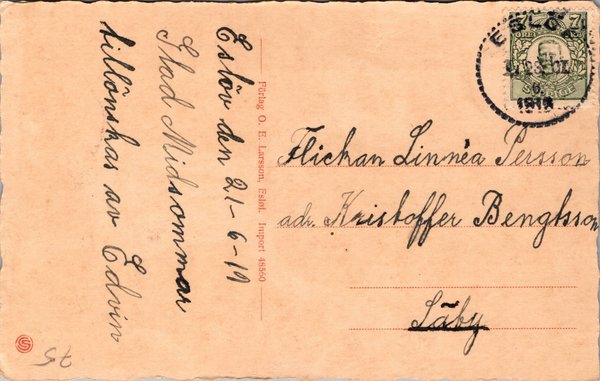 Eslöv den 21-6-19
Glad Midsommar
tillönskas av Edvin
Förlag O. E. Larsson, Eslöf. Import 48560
ESLÖV
7
ÖRE
SVERIGE
6
Flickan Linnéa Persson
adr. Kristoffer Bengtsson
Säby